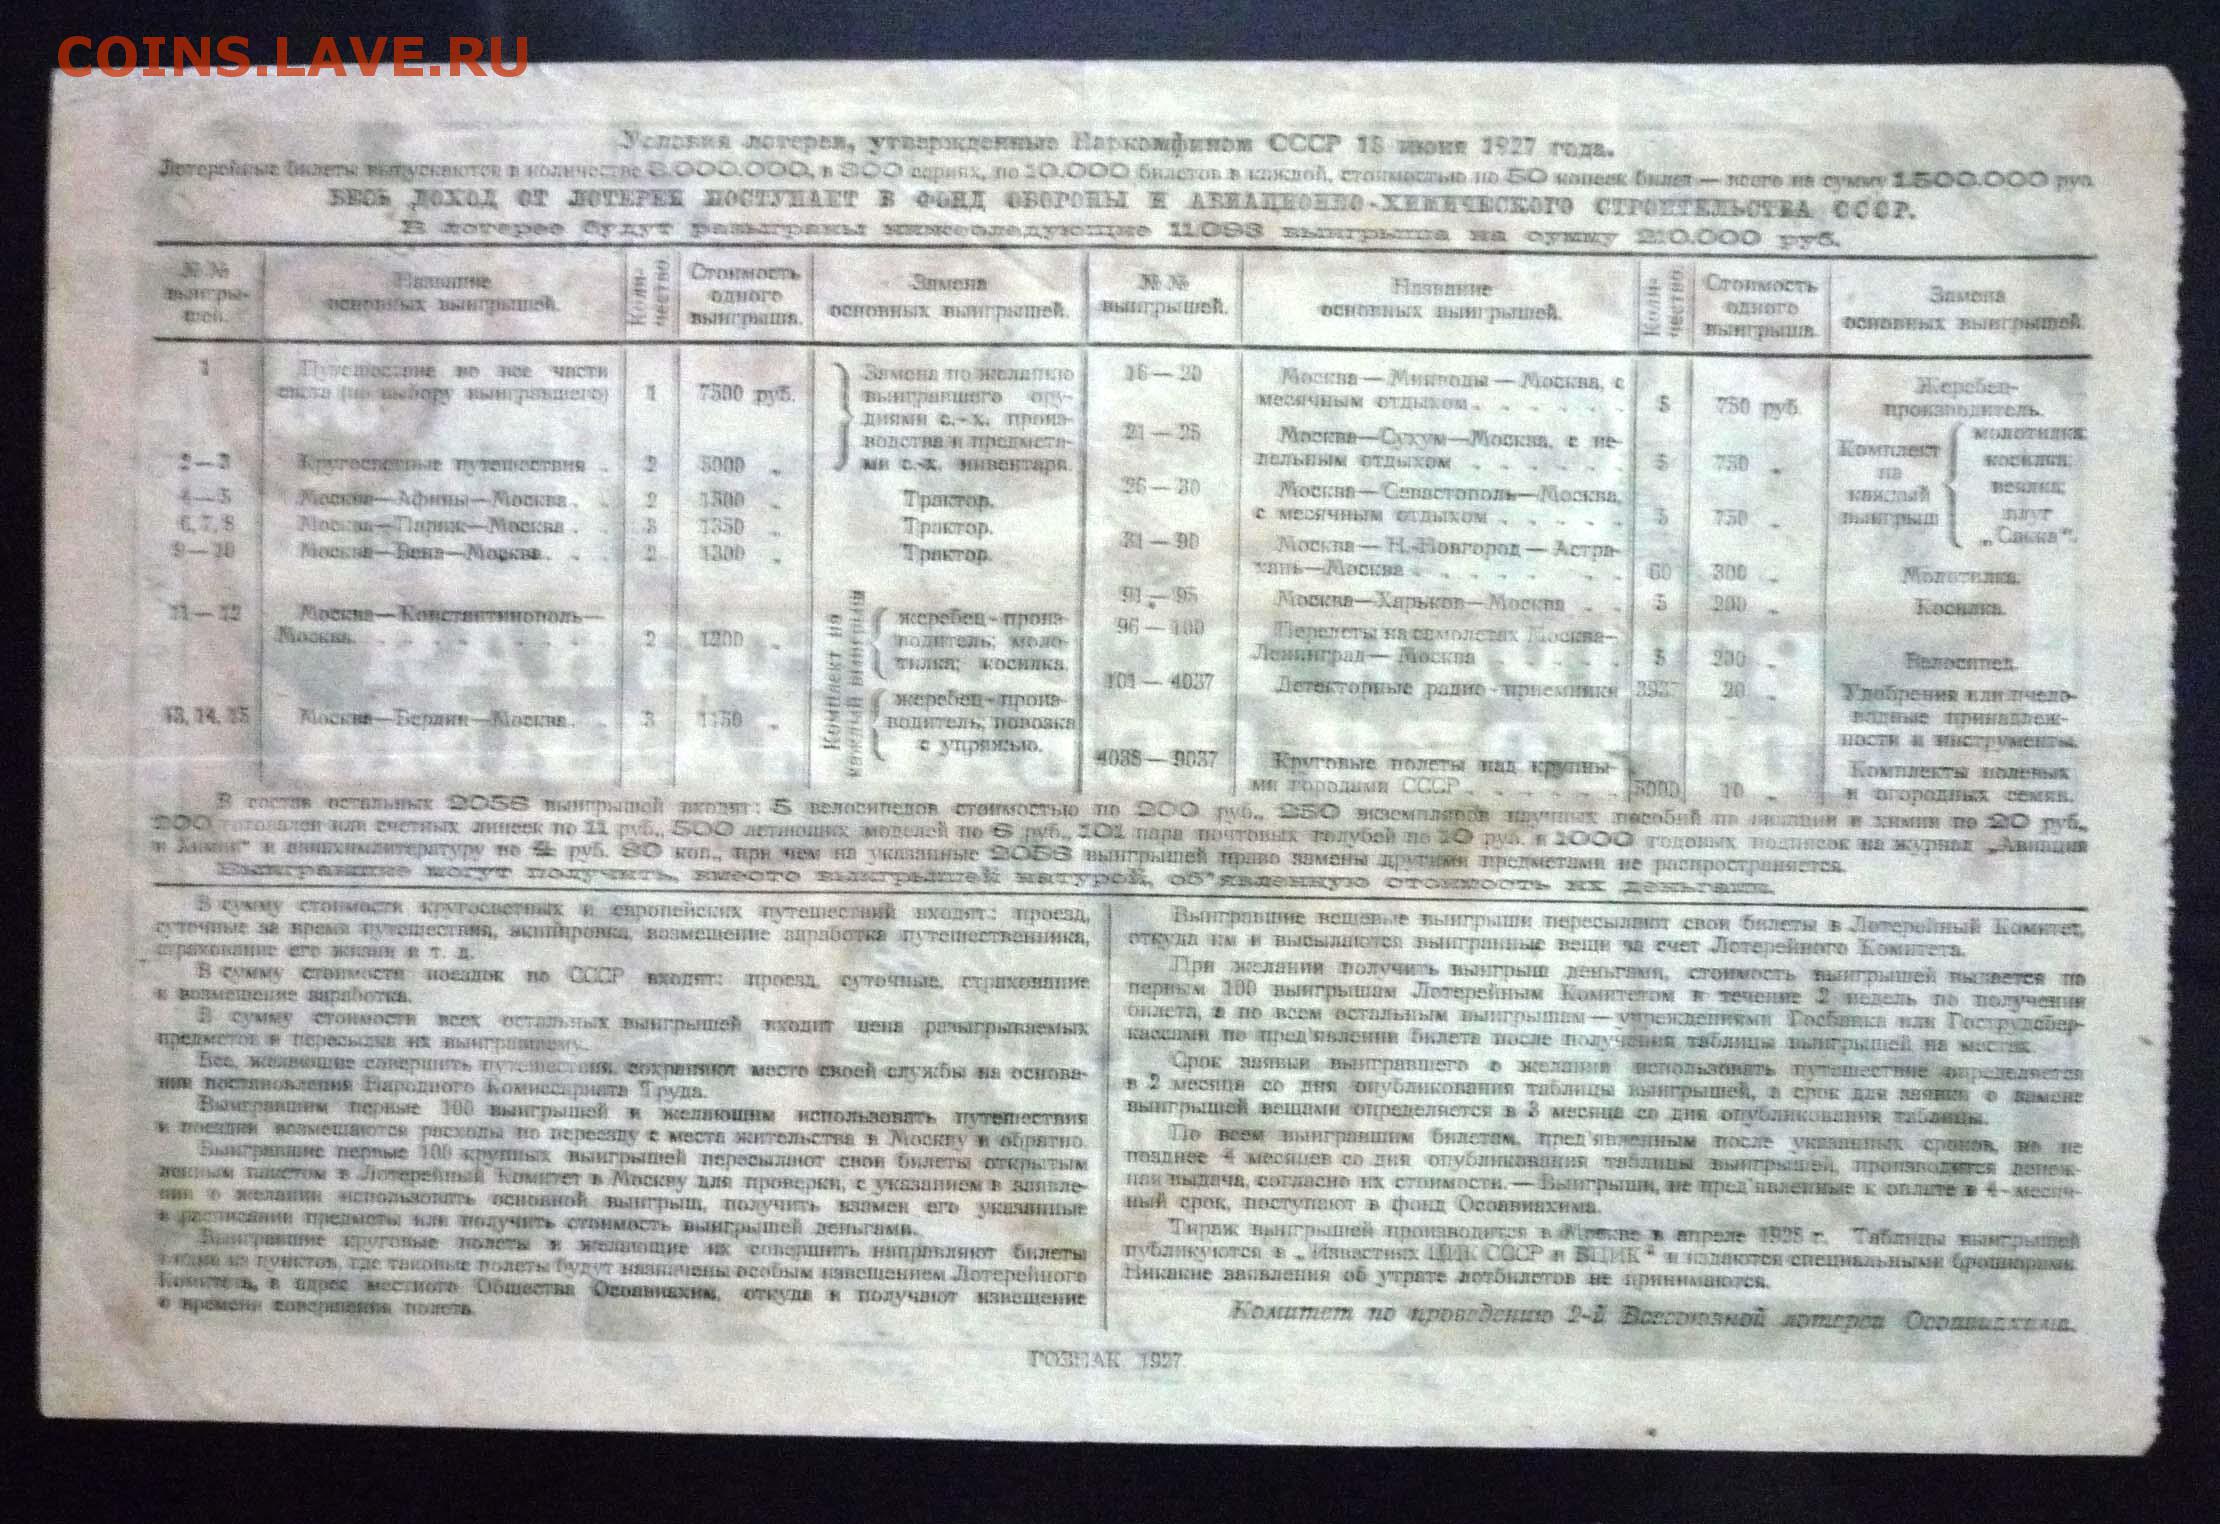 COINS.LAVE.RU
Условия лотереи, утвержденные Наркомфином СССР 18 июня 1927 года.
Лотерейные билеты выпускаются в количестве 3.000.000, в 300 сериях, по 10.000 билетов в каждой, стоимостью по 50 копеек билет — всего на сумму 1.500.000 руб.
ВЕСЬ ДОХОД ОТ ЛОТЕРЕИ ПОСТУПАЕТ В ФОНД ОБОРОНЫ И АВИАЦИОННО-ХИМИЧЕСКОГО СТРОИТЕЛЬСТВА СССР.
В лотерее будут разыграны нижеследующие 11093 выигрыша на сумму 210.000 руб.
№№ выигры-шей.
Название основных выигрышей.
Коли-чество
Стоимость одного выигрыша.
Замена основных выигрышей.
№№ выигрышей.
Название основных выигрышей.
Коли-чество.
Стоимость одного выигрыша.
Замена основных выигрышей.
1 Путешествие во все части
света (по выбору выигравшего) 1 7500 руб.
2—3 Кругосветные путешествия . 2 5000 „
Замена по желанию
выигравшего ору-
диями с.-х. произ-
водства и предмета-
ми с.-х. инвентаря.
4—5 Москва—Афины—Москва . . 2 1500 „ Трактор.
6, 7, 8 Москва—Париж—Москва . . 3 1350 „ Трактор.
9—10 Москва—Вена—Москва . . 2 1300 „ Трактор.
11—12 Москва—Константинополь—
Москва. . . . . . . . 2 1200 „
Комплект на каждый выигрыш
жеребец-произ-
водитель; моло-
тилка; косилка.
13, 14, 15 Москва—Берлин—Москва. . 3 1150 „
жеребец-произ-
водитель; повозка
с упряжью.
16—20 Москва—Минводы—Москва, с
месячным отдыхом . . . . . 5 750 руб.
Жеребец-
производитель.
21—25 Москва—Сухум—Москва, с не-
дельным отдыхом . . . . . 5 750 „
26—30 Москва—Севастополь—Москва,
с месячным отдыхом . . . . . 5 750 „
Комплект
на
каждый
выигрыш
молотилка;
косилка;
веялка;
плуг
„Сакка“.
31—90 Москва—Н.-Новгород—Астра-
хань—Москва . . . . . . 60 300 „ Молотилка.
91—95 Москва—Харьков—Москва . . 5 200 „ Косилка.
96—100 Перелеты на самолетах Москва—
Ленинград—Москва . . . . . 5 200 „ Велосипед.
101—4037 Детекторные радио-приемники 3937 20 „
Удобрения или пчело-
водные принадлеж-
ности и инструменты.
4038—9037 Круговые полеты над крупны-
ми городами СССР . . . . . 5000 10 „
Комплекты полевых
и огородных семян.
В состав остальных 2056 выигрышей входят: 5 велосипедов стоимостью по 200 руб., 250 экземпляров научных пособий по авиации и химии по 20 руб.,
200 готовален или счетных линеек по 11 руб., 500 летающих моделей по 6 руб., 101 пара почтовых голубей по 10 руб. и 1000 годовых подписок на журнал „Авиация
и Химия“ и авиахимлитературу по 4 руб. 80 коп., при чем на указанные 2056 выигрышей право замены другими предметами не распространяется.
Выигравшие могут получить, вместо выигрышей натурой, об'явленную стоимость их деньгами.
В сумму стоимости кругосветных и европейских путешествий входят: проезд,
суточные за время путешествия, экипировка, возмещение заработка путешественника,
страхование его жизни и т. д.
В сумму стоимости поездок по СССР входят: проезд, суточные, страхование
и возмещение заработка.
В сумму стоимости всех остальных выигрышей входит цена разыгрываемых
предметов и пересылка их выигравшему.
Все, желающие совершить путешествия, сохраняют место своей службы на основа-
нии постановления Народного Комиссариата Труда.
Выигравшим первые 100 выигрышей и желающим использовать путешествия
и поездки возмещаются расходы по переезду с места жительства в Москву и обратно.
Выигравшие первые 100 крупных выигрышей пересылают свои билеты открытым
ценным пакетом в Лотерейный Комитет в Москву для проверки, с указанием в заявле-
нии о желании использовать основной выигрыш, получить взамен его указанные
в расписании предметы или получить стоимость выигрышей деньгами.
Выигравшие круговые полеты и желающие их совершить направляют билеты
в один из пунктов, где таковые полеты будут назначены особым извещением Лотерейного
Комитета, в адрес местного Общества Осоавиахим, откуда и получают извещение
о времени совершения полета.
Выигравшие вещевые выигрыши пересылают свои билеты в Лотерейный Комитет,
откуда им и высылаются выигранные вещи за счет Лотерейного Комитета.
При желании получить выигрыш деньгами, стоимость выигрышей выдается по
первым 100 выигрышам Лотерейным Комитетом в течение 2 недель по получении
билета, а по всем остальным выигрышам—учреждениями Госбанка или Гострудсбер-
кассами по пред'явлении билета после получения таблицы выигрышей на местах.
Срок заявки выигравшего о желании использовать путешествие определяется
в 2 месяца со дня опубликования таблицы выигрышей, а срок для заявки о замене
выигрышей вещами определяется в 3 месяца со дня опубликования таблицы.
По всем выигравшим билетам, пред'явленным после указанных сроков, но не
позднее 4 месяцев со дня опубликования таблицы выигрышей, производится денеж-
ная выдача, согласно их стоимости.—Выигрыши, не пред'явленные к оплате в 4-месяч-
ный срок, поступают в фонд Осоавиахима.
Тираж выигрышей производится в Москве в апреле 1928 г. Таблицы выигрышей
публикуются в „Известиях ЦИК СССР и ВЦИК“ и издаются специальными брошюрами.
Никакие заявления об утрате лотбилетов не принимаются.
Комитет по проведению 2-й Всесоюзной лотереи Осоавиахима.
ГОЗНАК 1927